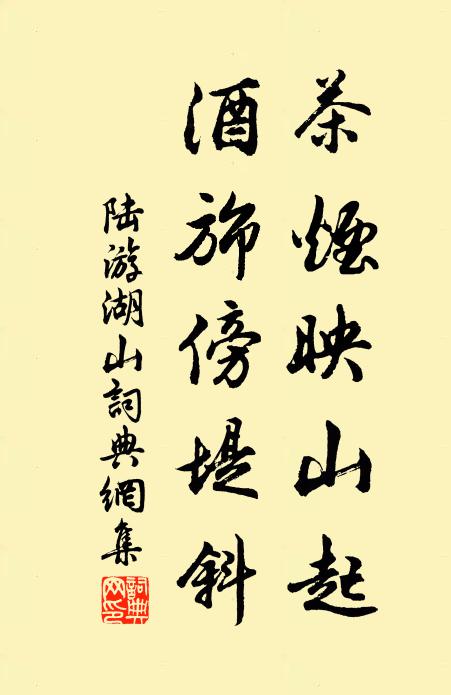 茶煙映山起
酒斾傍堤斜
陆游湖山詞典網集
詞典網印